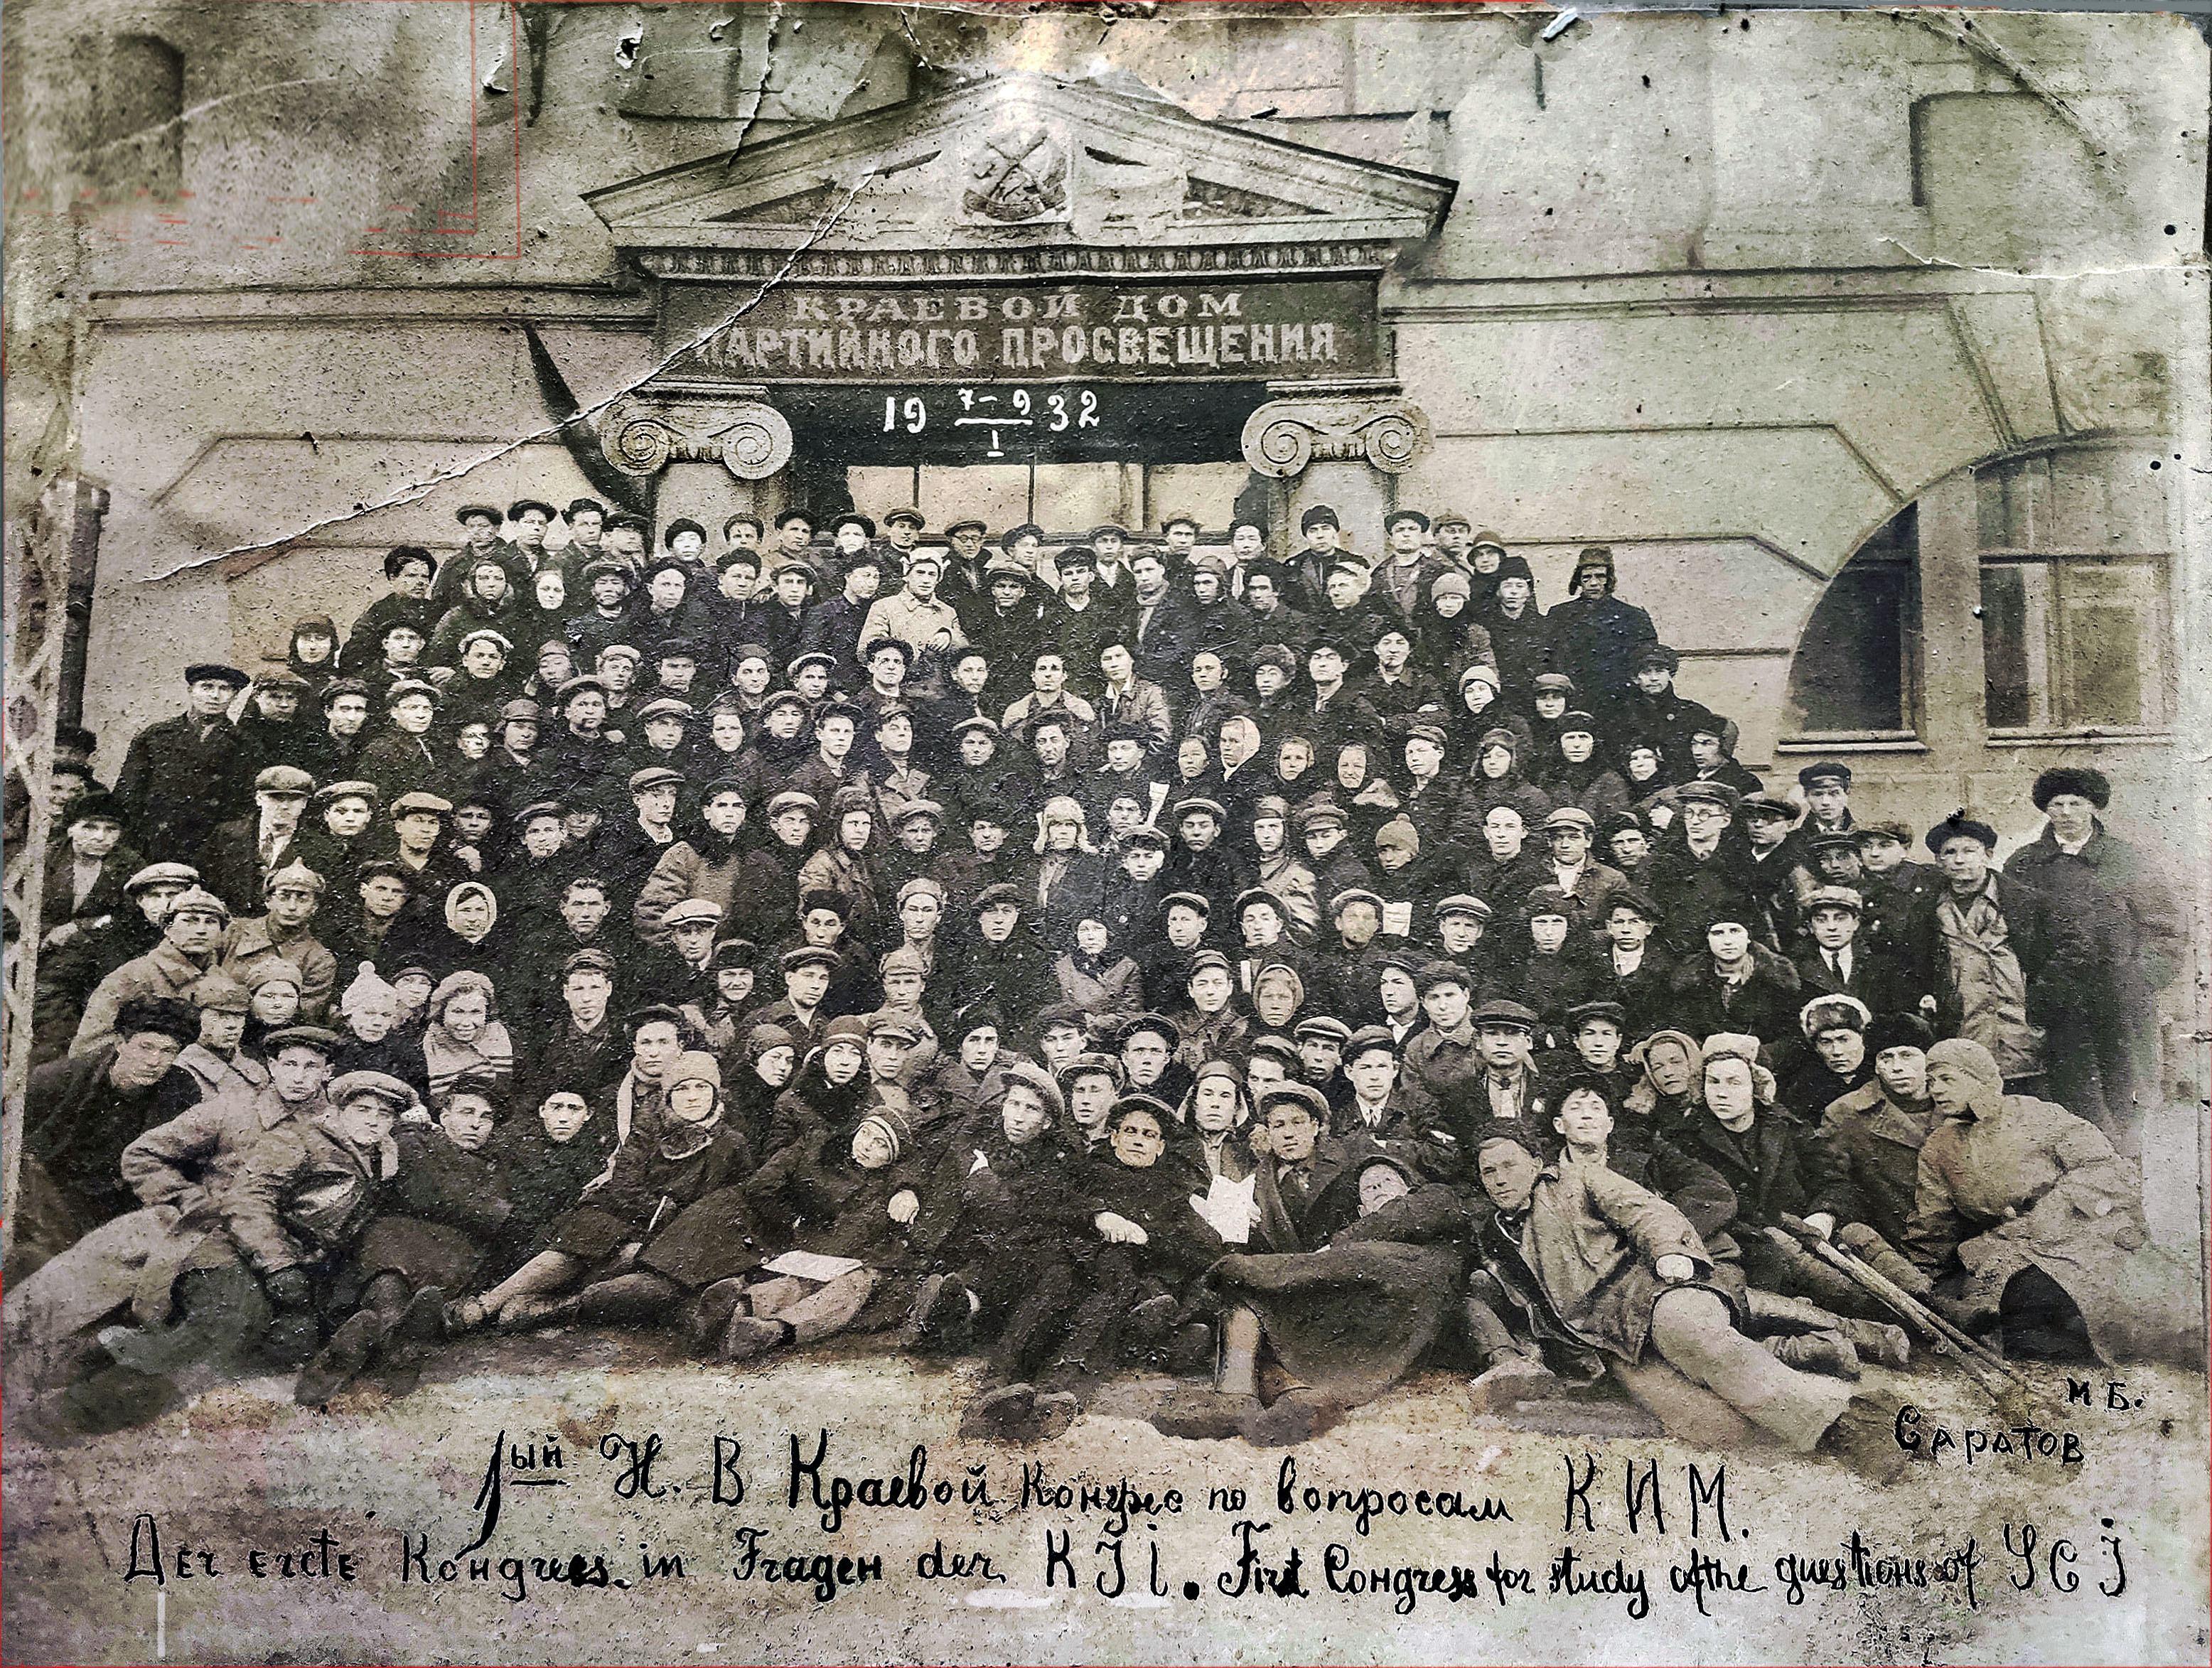 КРАЕВОЙ ДОМ
ПАРТИЙНОГО ПРОСВЕЩЕНИЯ
19 7-9/I 32
М Б.
САРАТОВ
1ый Н. В Краевой Конгрес по вопросам КИМ.
Дег егсте Конгрееs in Fragen der KJi. First Congress for study of the guestions of YCJ